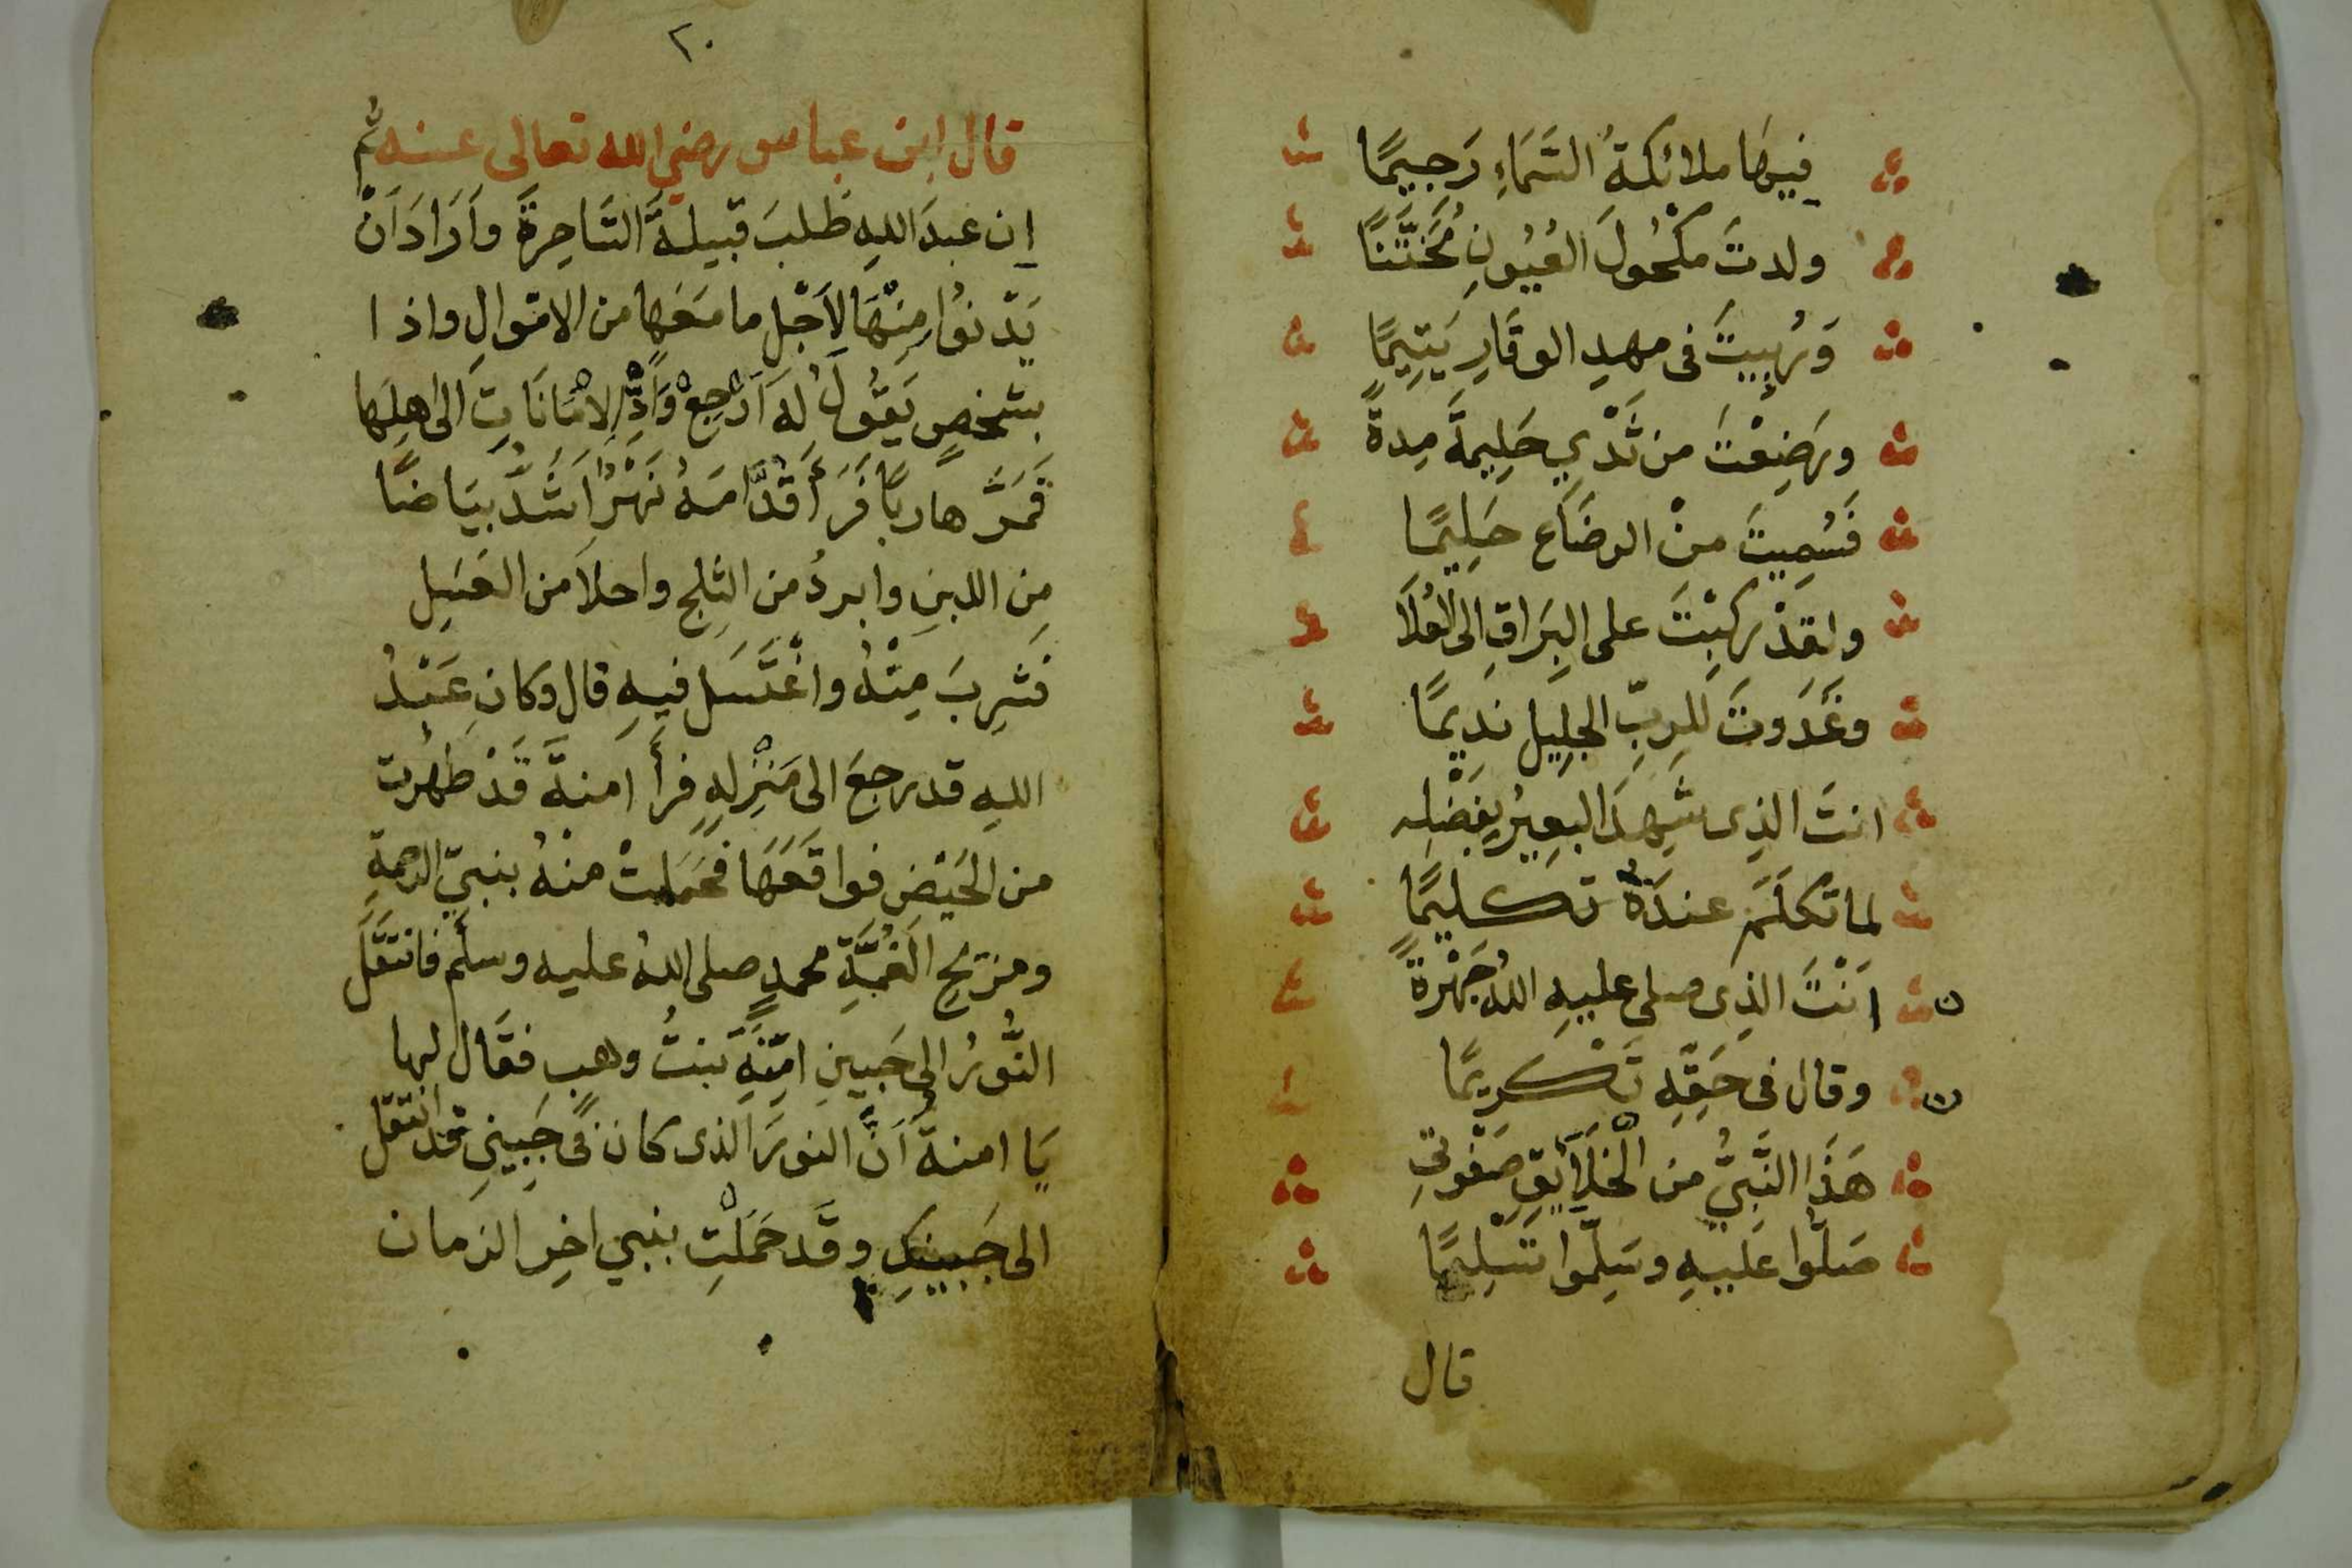 فيها ملائكةُ السَّمَاءِ رَجِيمًا
ولدتَ مكْحُولَ العُيُونِ مُخَتَّنًا
وَرُبِيتَ فى مهدِ الوقَارِ يَتِيمًا
ورَضِعْتَ من ثَدْيِ حَلِيمَةَ مِدةً
فَسُمِيتَ منْ الرضَاعِ حَلِيمًا
ولقدْ ركِبْتَ على البُرَاقِ الى العُلَا
وغَدَوتَ للرِبِّ الجلِيل ندِيمًا
انتَ الذِى شَهِدَ البعِيرُ بِفَضْلِه
لما تَكَلَّمَ عندَهُ تكليمًا
اَنْتَ الذِى صلى عليهِ اللهُ جَهْرَةً
وقال فى حَقِّهِ تَكْرِيمًا
هَذَا النَّبِيُّ من الْخَلَايِقِ صَفْوتِي
صَلّوا عَليهِ وسَلِّموا تَسْلِيمًا
قال
٢٠
قال ابن عباس رضي الله تعالى عنه ثم
إن عبدَ اللهِ طلبَ قبيلةَ السَّاحِرَةَ وأَرَادَ اَنْ
يَدْنوُا مِنْهَا لِاَجْلِ ما مَعَها من الامْوالِ واذا
بشخصٍ يَقُولُ لهَ اَرْجِعْ وَاَدِّ الاَمَانَاتِ الى اهلِهَا
فَمَرَّ هاربًا فَرَأَ قُدَّامَهُ نَهْرًا اَشَدَّ بيَاضًا
مِن اللبنِ وابردُ من الثلجِ واحلاَ من العَسَلِ
فشرِبَ مِنْهُ واغْتَسَل فيهِ قال وكان عَبْدُ
اللهِ قد رجعَ الى مَنْزِلِهِ فرأَ امنةَ قَدْ طهُرت
من الحَيْضِ فواقَعَهَا فحَمَلتْ منْهُ بنبيّ الرحمةِ
ومزيحِ الغُمَّةِ محمدٍ صلى اللهُ عليه وسلَّم فانتَقَلَ
النُّورُ الى جَبينِ امِنَةَ بنتُ وهبٍ فقَال لها
يَا امنةُ اَنَّ النورَ الذى كان فى جَبِينِي قد انتقل
الى جَبينِكِ وقَد حَمَلْتِ بنبي اخِرِ الزمان